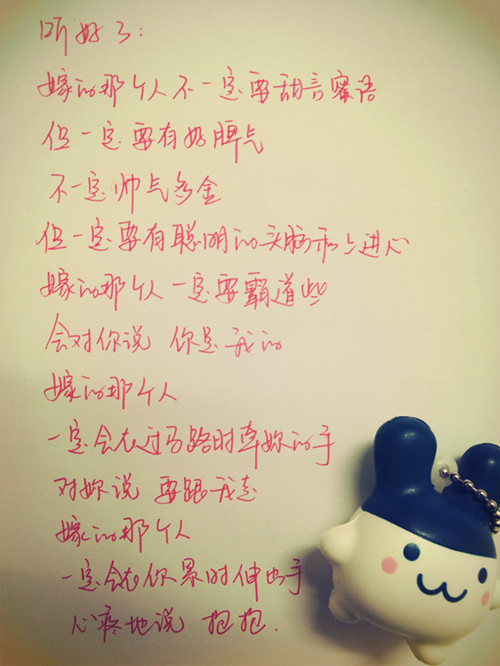 听好了:
嫁的那个人不一定要甜言蜜语
但一定要有好脾气
不一定帅气多金
但一定要有聪明的头脑和上进心
嫁的那个人一定要霸道些
会对你说 你是我的
嫁的那个人
一定会在过马路时牵妳的手
对妳说 要跟我走
嫁的那个人
一定会在你累时伸出手
心疼地说 抱抱.